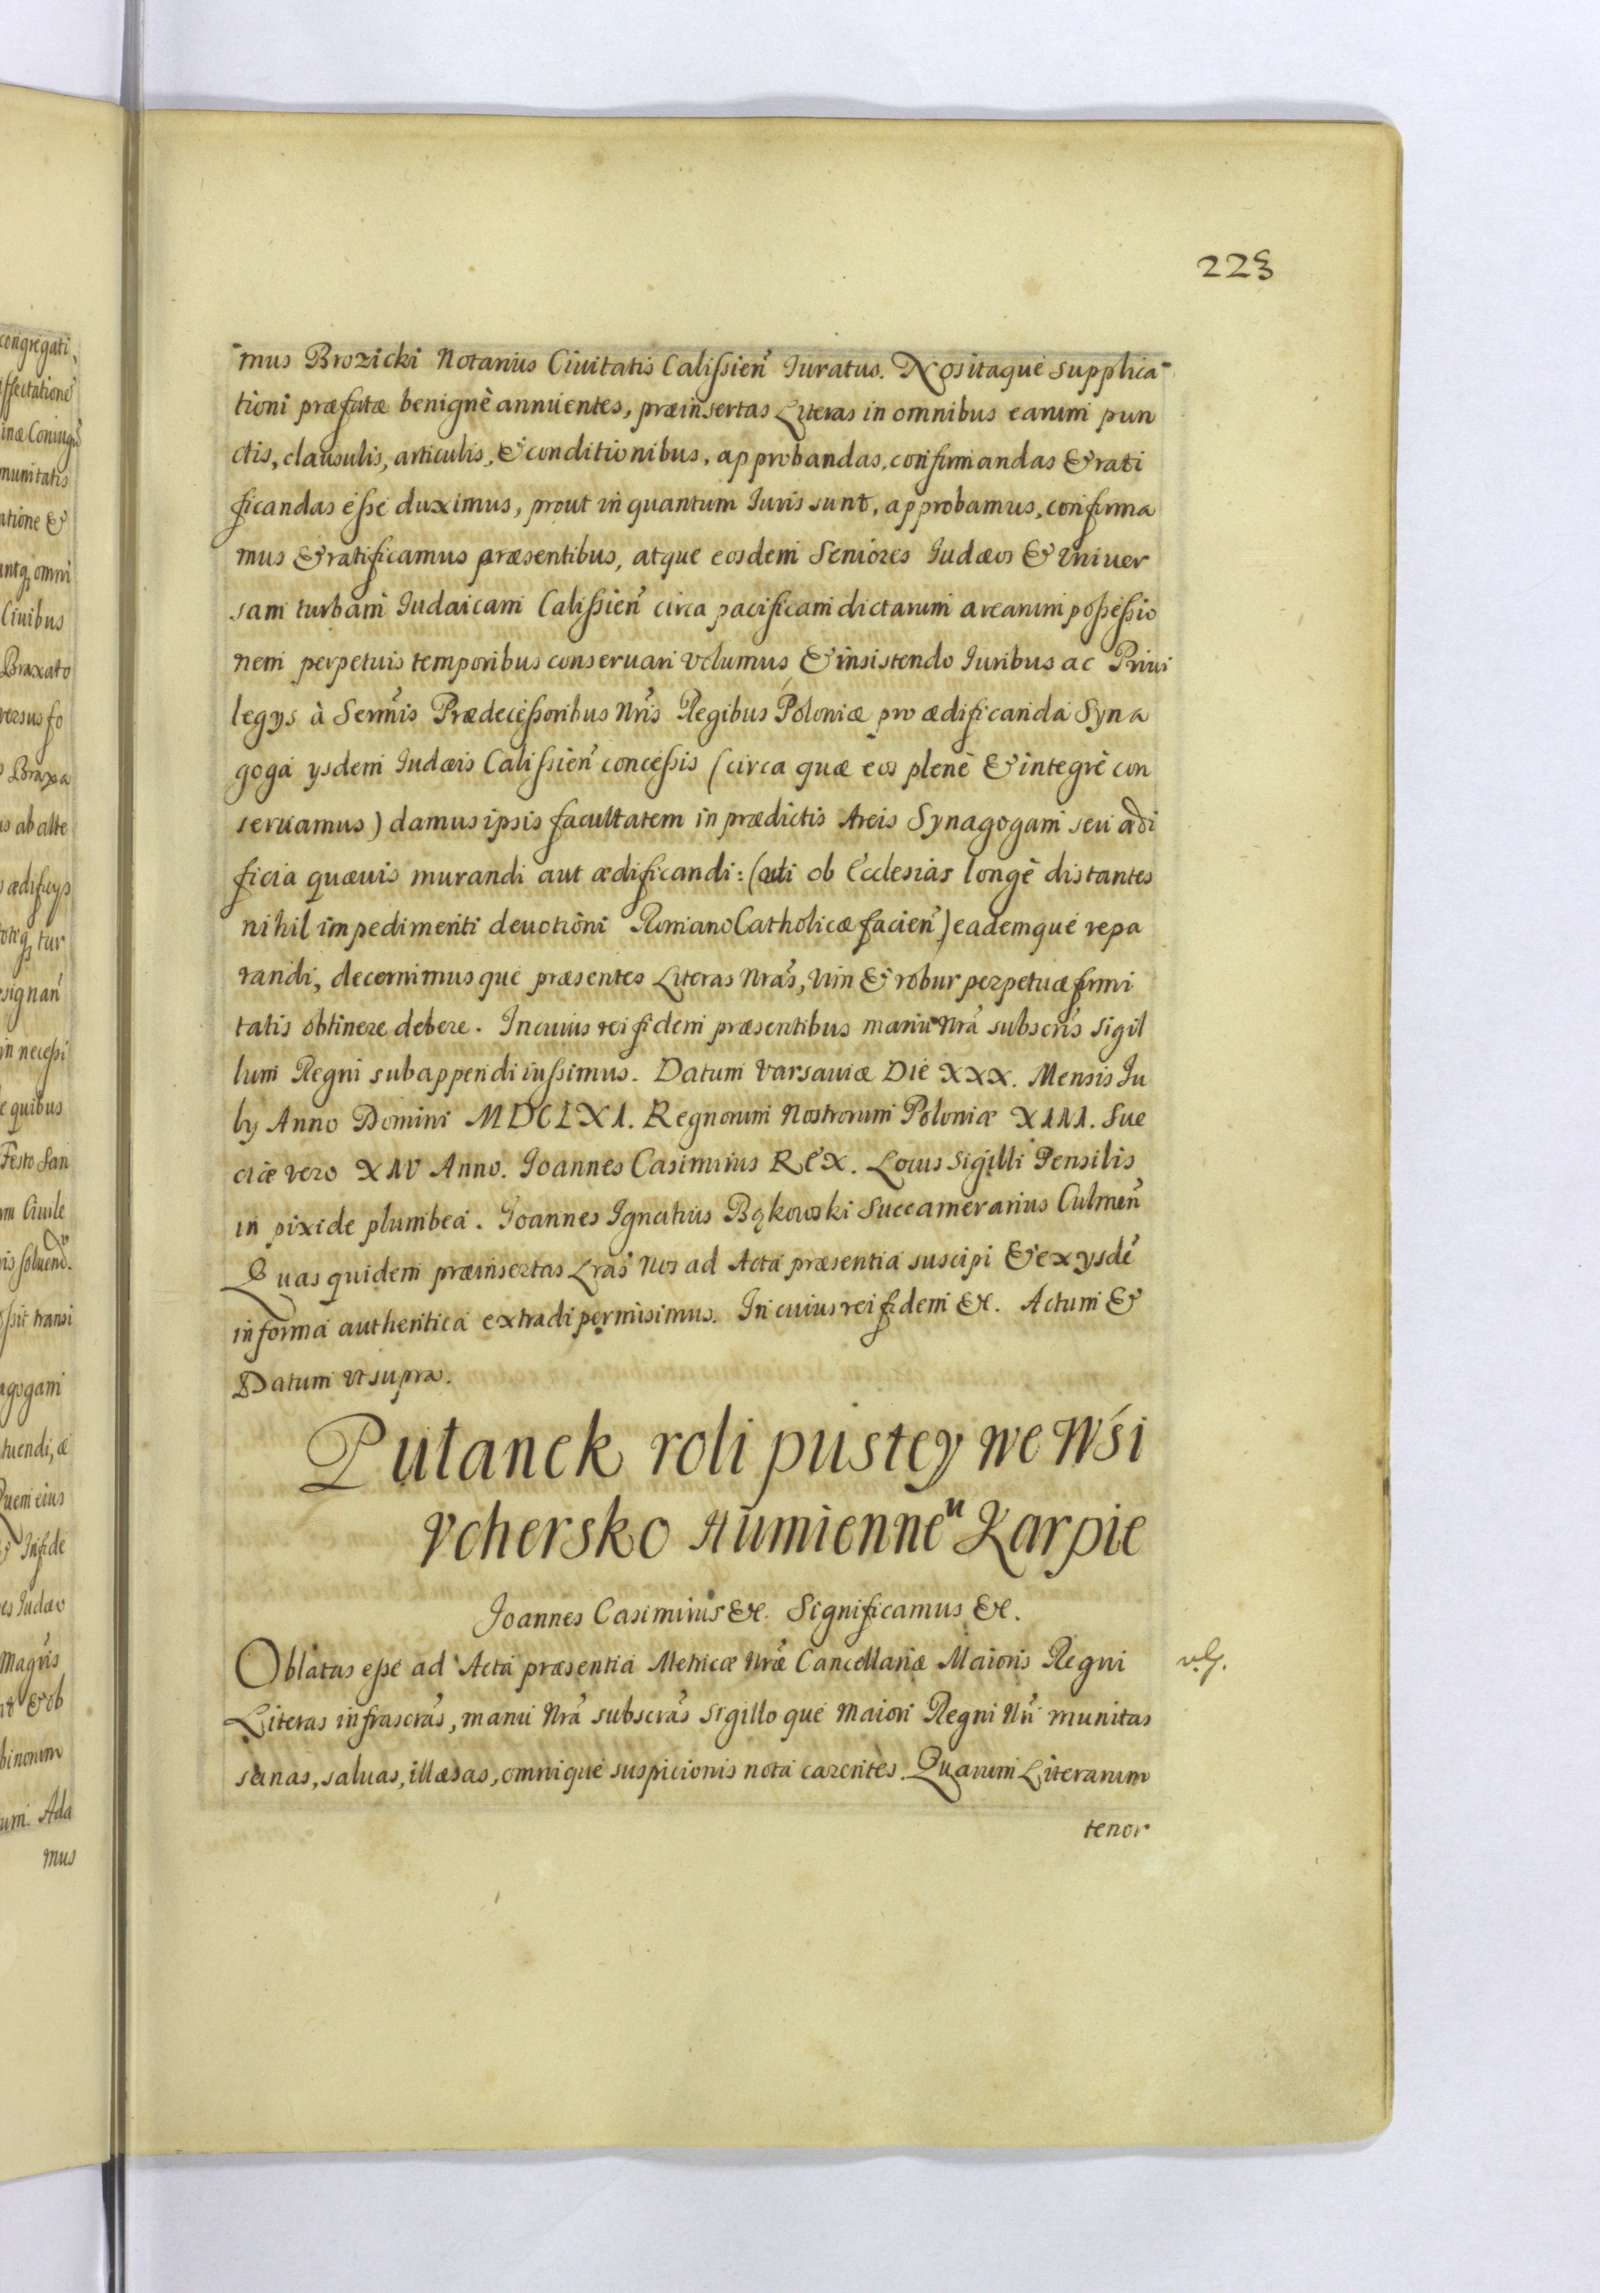 223
mus Brozicki Notarius Ciuitatis Calissien̄ Iuratus. Nos itaque supplica
tioni præfatæ benignè annuentes, præinsertas Literas in omnibus earum pun
ctis, clausulis, articulis, & conditionibus, approbandas, confirmandas & rati
ficandas esse duximus, prout in quantum Iuris sunt, approbamus, confirma
mus & ratificamus præsentibus, atque eosdem Seniores Iudæos & Vniuer
sam turbam Iudaicam Calissien̄ circa pacificam dictarum arearum possessio
nem perpetuis temporibus conseruari volumus & insistendo Iuribus ac Priui
legys à Serm̄is Prædecessoribus Nr̄is Regibus Poloniæ pro ædificanda Syna
goga ysdem Iudæis Calissien̄ concessis (circa quæ eos plenè & integrè con
seruamus) damus ipsis facultatem in prædictis Areis Synagogam seu ædi
ficia quæuis murandi aut ædificandi: (uti ob Ecclesias longè distantes
nihil impedimenti deuotioni Romano Catholicæ facien̄) eademque repa
randi, decernimusque præsentes Literas Nrās, vim & robur perpetuæ firmi
tatis obtinere debere. In cuius rei fidem præsentibus manu Nrā subscr̄is Sigil
lum Regni subappendi iussimus. Datum Varsauiæ Die XXX. Mensis Iu
ly Anno Domini MDCLXI. Regnorum Nostrorum Poloniæ XIII. Sue
ciæ vero XIV Anno. Ioannes Casimirus REX. Locus Sigilli Pensilis
in pixide plumbea. Ioannes Ignatius Bąkowski Succamerarius Culmen̄
Quas quidem præinsertas Lrās Nos ad Acta præsentia suscipi & ex ysdē
in forma authentica extradi permisimus. In cuius rei fidem &c. Actum &
Datum vt supra.
Pułanek roli pustey we Wśi
Vchersko Karpie
Ioannes Casimirus &c. Significamus &c.
Oblatas esse ad Acta præsentia Metricæ Nrǣ Cancellariæ Maioris Regni
Literas infrascrās, manu Nrā subscrās Sigilloque Maiori Regni Nr̄i munitas
sanas, saluas, illæsas, omnique suspicionis nota carentes. Quarum Literarum
tenor